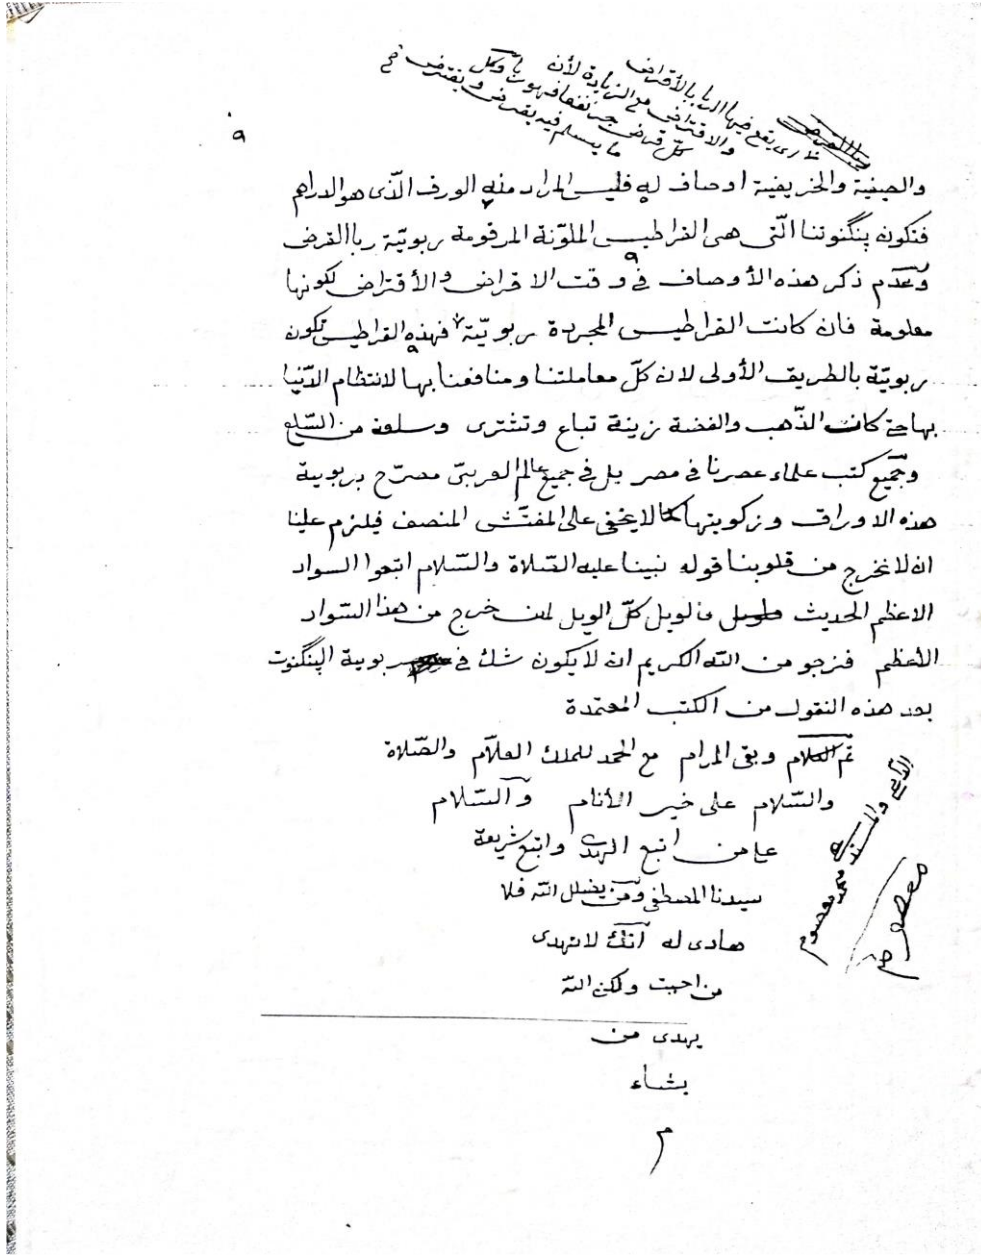 ٩
أى يقع فيها الربا بالأقراض
والاقتراض مع الزيادة لأن
كلّ قرض جرّ نفعا فهو ربا وكل
ما يسلم فيه يقرض ويقترض
والصيفية والخريفية اوصاف له فليس المراد منه الورق الّذى هو الدراهم
فتكون بنگنوتنا الّتى هى القراطيس الملوّنة المرقومة ربويّة ربا القرض
وعدم ذكر هذه الأوصاف فى وقت الاقراض والأقتراض لكونها
معلومة فان كانت القراطيس المجردة ربويّة فهذه القراطيس تكون
ربويّة بالطريق الأولى لان كلّ معاملتنا ومنافعنا بها لانتظام الدّنيا
بها حتى كانت الذّهب والفضة زينة تباع وتشترى وسلعة من السّلع
وجميع كتب علماء عصرنا فى مصر بل فى جميع عالم العربىّ مصرّح بربوية
هذه الاوراق وزكويتها كما لا يخفى على المفتّش المنصف فيلزم علينا
ان لا نخرج من قلوبنا قوله نبينا عليه الصّلاة والسّلام اتبعوا السواد
الاعظم الحديث فالويل كلّ الويل لمن خرج من هذا السّواد
الأعظم فنرجو من الله الكريم ان لا يكون شك فى ربوية البنگنوت
بعد هذه النقول من الكتب المعتمدة
تم الكلام وبقى المرام مع الحمد للملك العلاّم والصّلاة
والسّلام على خير الأنام والسّلام
على من اتبع الهدى واتبع شريعة
سيدنا المصطفى ومن يضلل الله فلا
هادى له انّك لا تهدى
من احببت ولكن الله
يهدى من
يشاء
م
محمد معصوم
معصوم